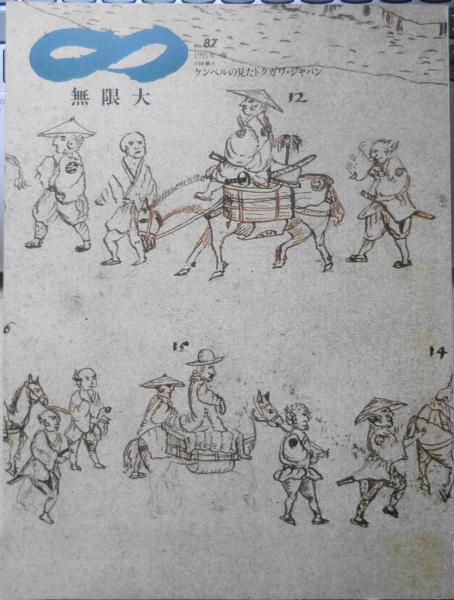 No.87
1991年
ケンペルの見たトクガワ・ジャパン
無限大
12
6
15
14